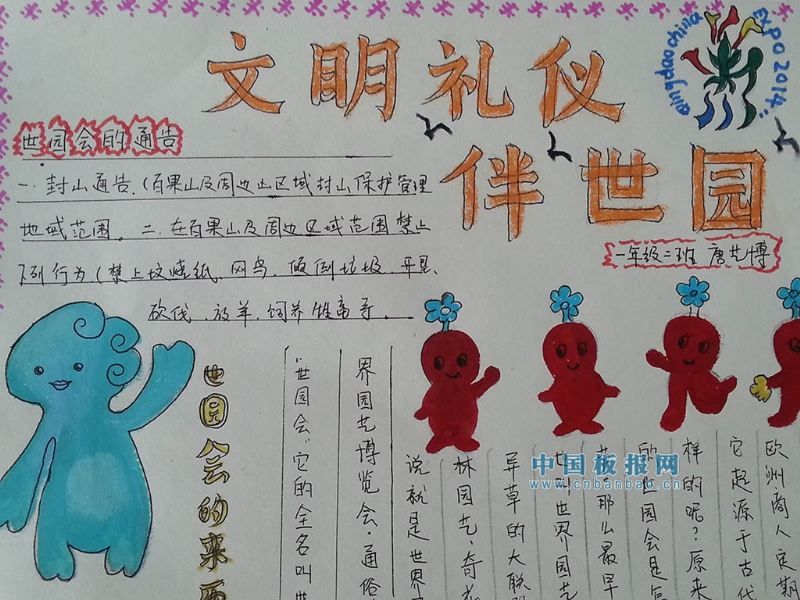 文明礼仪
伴世园
Qingdao china Expo 2014..
世园会的通告
一.封山通告.(百果山及周边山区域封山保护管理
地域范围。二.在百果山及周边区域范围禁止
下列行为(禁上坟烧纸.网鸟.倾倒垃圾.开垦、
砍伐、放羊、饲养牲畜等。
一年级二班 唐艺博
世园会的来
"世园会"它的全名叫世
界园艺博览会.通俗
说就是世界
林园艺、奇花
异草的大联
也叫世界园艺
那么最早
的世园会是怎
样的呢?原来
它起源于古代
欧洲商人定期
中国板报网
www.cnbanbao.cn